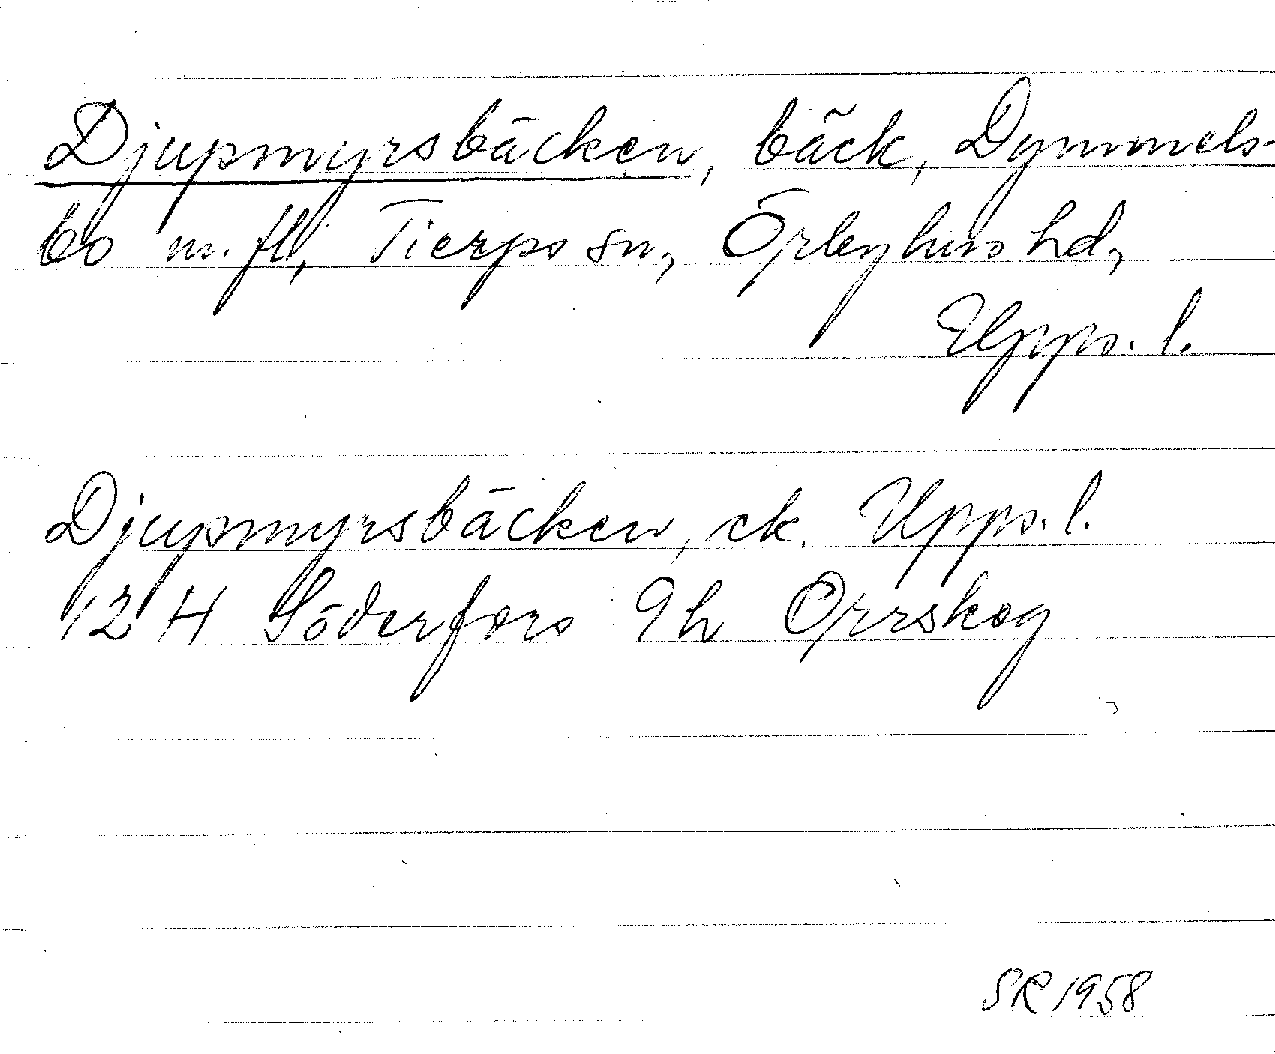 Djupmyrsbäcken, bäck, Dymmels-
bo m. fl., Tierps sn, Örbyhus hd,
Upps. l.
Djupmyrsbäcken, ek. Upps. l.
12 H Söderfors 9 h Orrskog
SR 1958